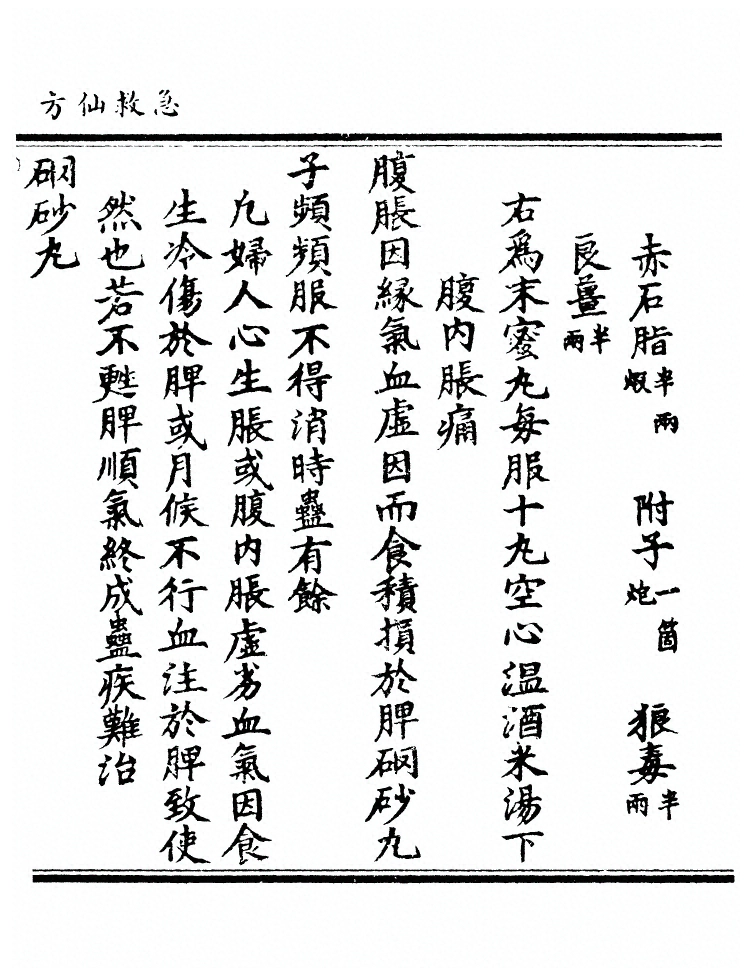 急救仙方
赤石脂半兩煅 附子一箇炮 狼毒半兩
良薑半兩
右爲末蜜丸每服十丸空心温酒米湯下
腹内脹痛
腹脹因緣氣血虛因而食積損於脾硇砂丸
子頻頻服不得消時蠱有餘
凢婦人心生脹或腹内脹虛劣血氣因食
生冷傷於脾或月候不行血注於脾致使
然也若不甦脾順氣終成蠱疾難治
硇砂丸